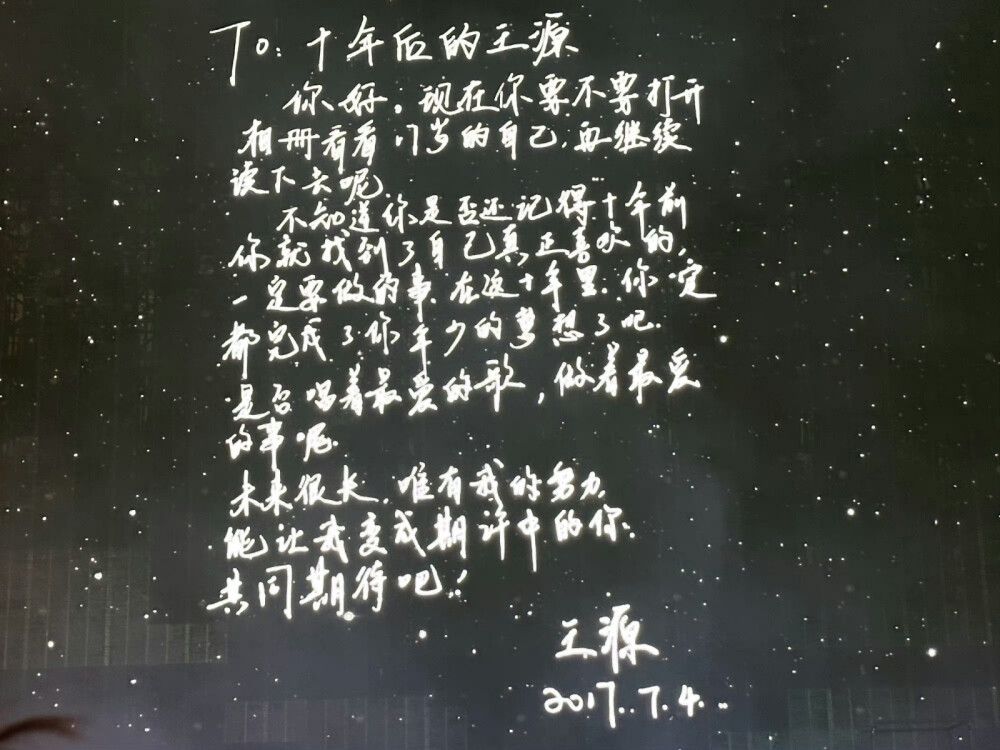 To: 十年后的王源
你好。现在你要不要打开
相册看看17岁的自己,再继续
读下去呢
不知道你是否还记得十年前
你就找到了自己真正喜欢的,
一定要做的事.在这十年里.你一定
都完成了你年少的梦想了吧.
是否唱着最爱的歌,做着最爱
的事呢.
未来很长,唯有我的努力,
能让我变成期许中的你.
共同期待吧!
王源
2017.7.4.